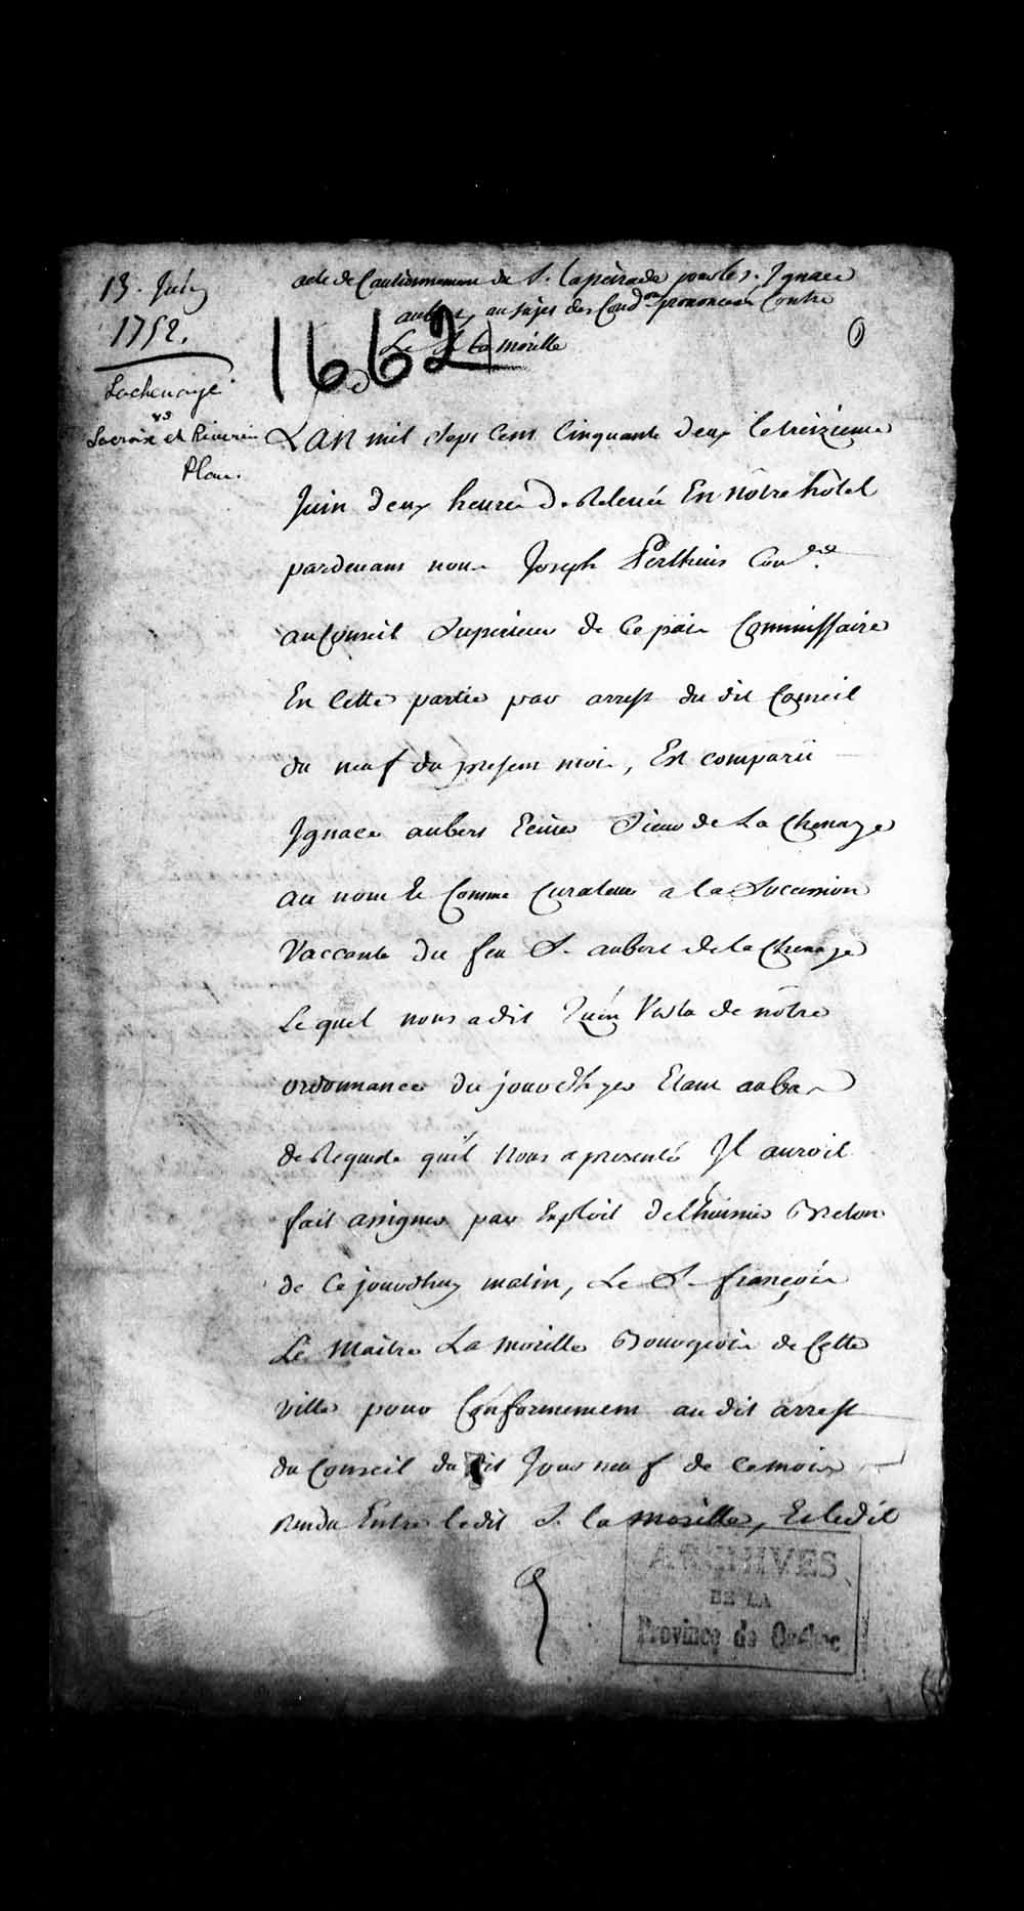 13. Juin
1752.
Lachenaye
vs
Lacroix et Riverin
Plan.
acte de Cautionnement du S. Lapeirade pour le s. Ignace
aubert, au sujet des Cond.on prononcées Contre
Le S. La morille
1662
LAN mil sept Cent Cinquante deux le treizieme
Juin deux heures De Relevée En nôtre hôtel
pardevant nous Joseph Perthuis Con.er
au Conseil Superieur de Ce païs Commissaire
En Cette partie par arrest du dit Conseil
du neuf du present mois, Est comparü
Ignace aubert Ecuier Sieur de La Chenaye
au nom et Comme Curateur a la Succession
Vaccante du feu S. aubert de la Chenaye
Lequel nous a dit qu'en Vertu de nôtre
ordonnance du jour d'hyer Etant au bas
de Requeste quil Nous a presenté Il auroit
fait assigner par Exploit de l'huissier Breton
de Ce jourdhuy matin, Le S. françois
Le Maitre La Morille Bourgeois de Cette
ville pour Conformement au dit arrest
du Conseil du dit Jour neuf de ce mois
Rendu Entre le dit S. la morille, Et le dit
ARCHIVES
DE LA
Province de Québec